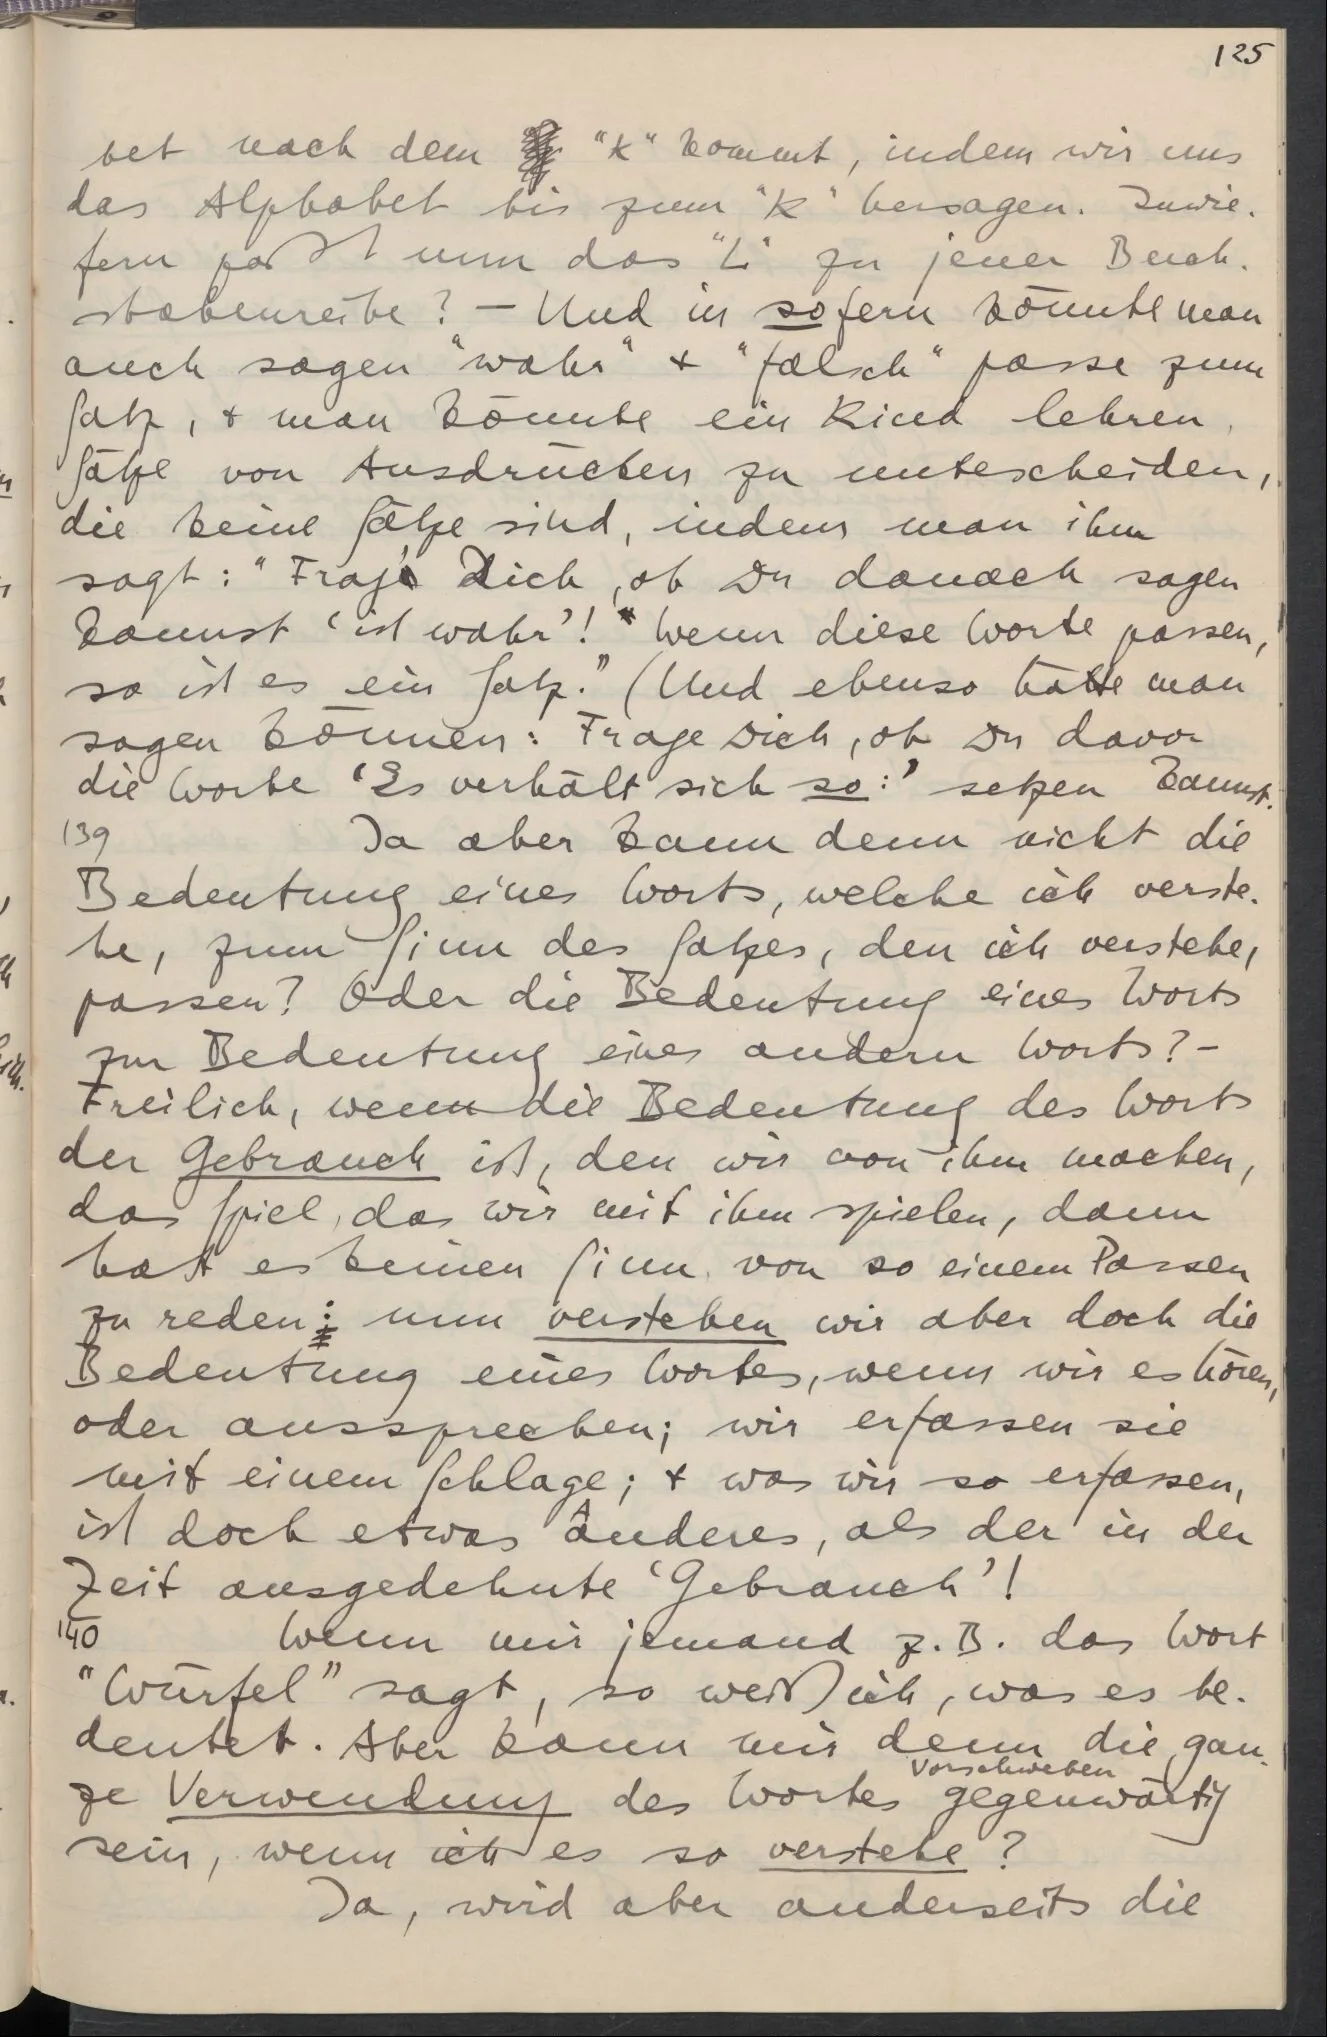 125
bet nach dem "K" kommt, indem wir uns
das Alphabet bis zum "K" hersagen. Inwie-
fern paßt nun das "L" zu jener Buch-
stabenreihe? – Und in sofern könnte man
auch sagen "wahr" & "falsch" passe zum
Satz, & man könnte ein Kind lehren,
Sätze von Ausdrücken zu unterscheiden,
die keine Sätze sind, indem man ihm
sagt: "Frag' Dich, ob Du danach sagen
kannst 'ist wahr'! Wenn diese Worte passen,
so ist es ein Satz." (Und ebenso hätte man
sagen können: Frage Dich, ob Du davor
die Worte 'Es verhält sich so:' setzen kannst.
139 Ja aber kann denn nicht die
Bedeutung eines Worts, welche ich verste-
he, zum Sinn des Satzes, den ich verstehe,
passen? Oder die Bedeutung eines Worts
zur Bedeutung eines andern Worts? –
Freilich, wenn die Bedeutung des Worts
der Gebrauch ist, den wir von ihm machen,
das Spiel, das wir mit ihm spielen, dann
hat es keinen Sinn von so einem Passen
zu reden: nun verstehen wir aber doch die
Bedeutung eines Wortes, wenn wir es hören,
oder aussprechen; wir erfassen sie
mit einem Schlage; & was wir so erfassen,
ist doch etwas Anderes, als der in der
Zeit ausgedehnte 'Gebrauch'!
140 Wenn mir jemand z.B. das Wort
"Würfel" sagt, so weiß ich, was es be-
deutet. Aber kann mir denn die gan-
vorschweben
ze Verwendung des Wortes gegenwärtig
sein, wenn ich es so verstehe?
Ja, wird aber anderseits die